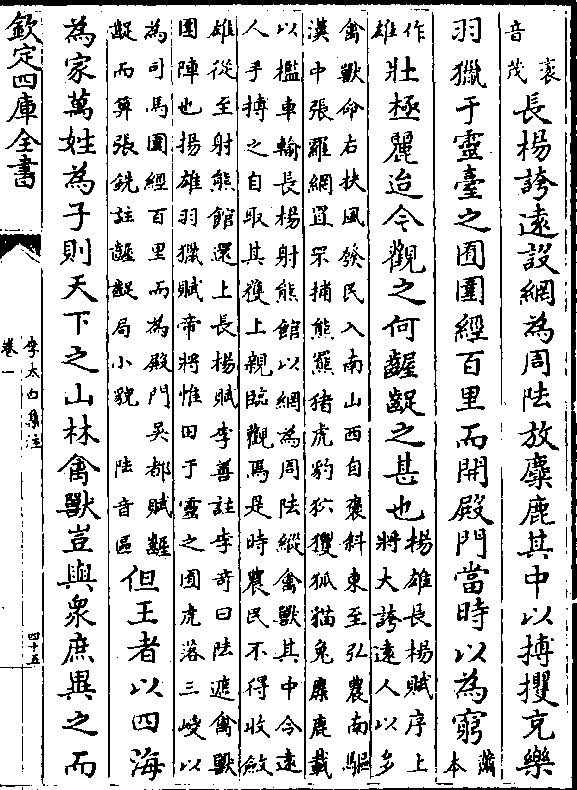 袤
音茂
長楊誇遠設網為周阹放麋鹿其中以搏攫充樂
羽獵于靈臺之囿圍經百里而開殿門當時以為窮
蕭
本
作
雄
壯極麗迨今觀之何齷齪之甚也
楊雄長楊賦序上
將大誇逺人以多
禽獸命右扶風發民入南山西自褒斜東至弘農南驅
漢中張羅網罝罘捕熊羆猪虎豹狖玃狐猫兔麋鹿載
以檻車輸長楊射熊館以網為周阹縱禽獸其中令逺
人手搏之自取其獲上親臨觀焉是時農民不得收斂
雄從至射熊館還上長楊賦李善註李竒曰阹遮禽獸
圍陣也揚雄羽獵賦帝將惟田于靈之囿虎落三嵏以
為司馬圍經百里而為殿門吳都賦齷
齪而算張銑註齷齪局小貌 阹音區
但王者以四海
為家萬姓為子則天下之山林禽獸豈與衆庶異之而
欽定四庫全書
李太白集注
卷一
四十五